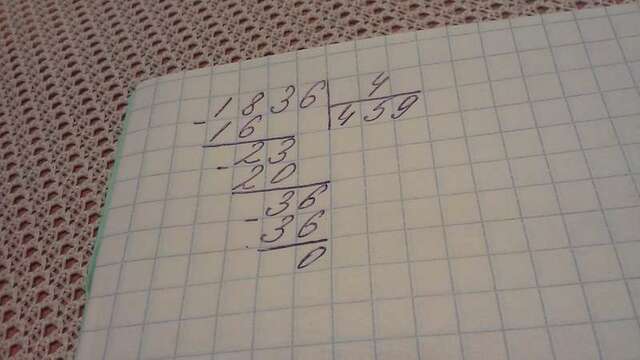 -1836 4
16 459
-23
20
-36
36
0